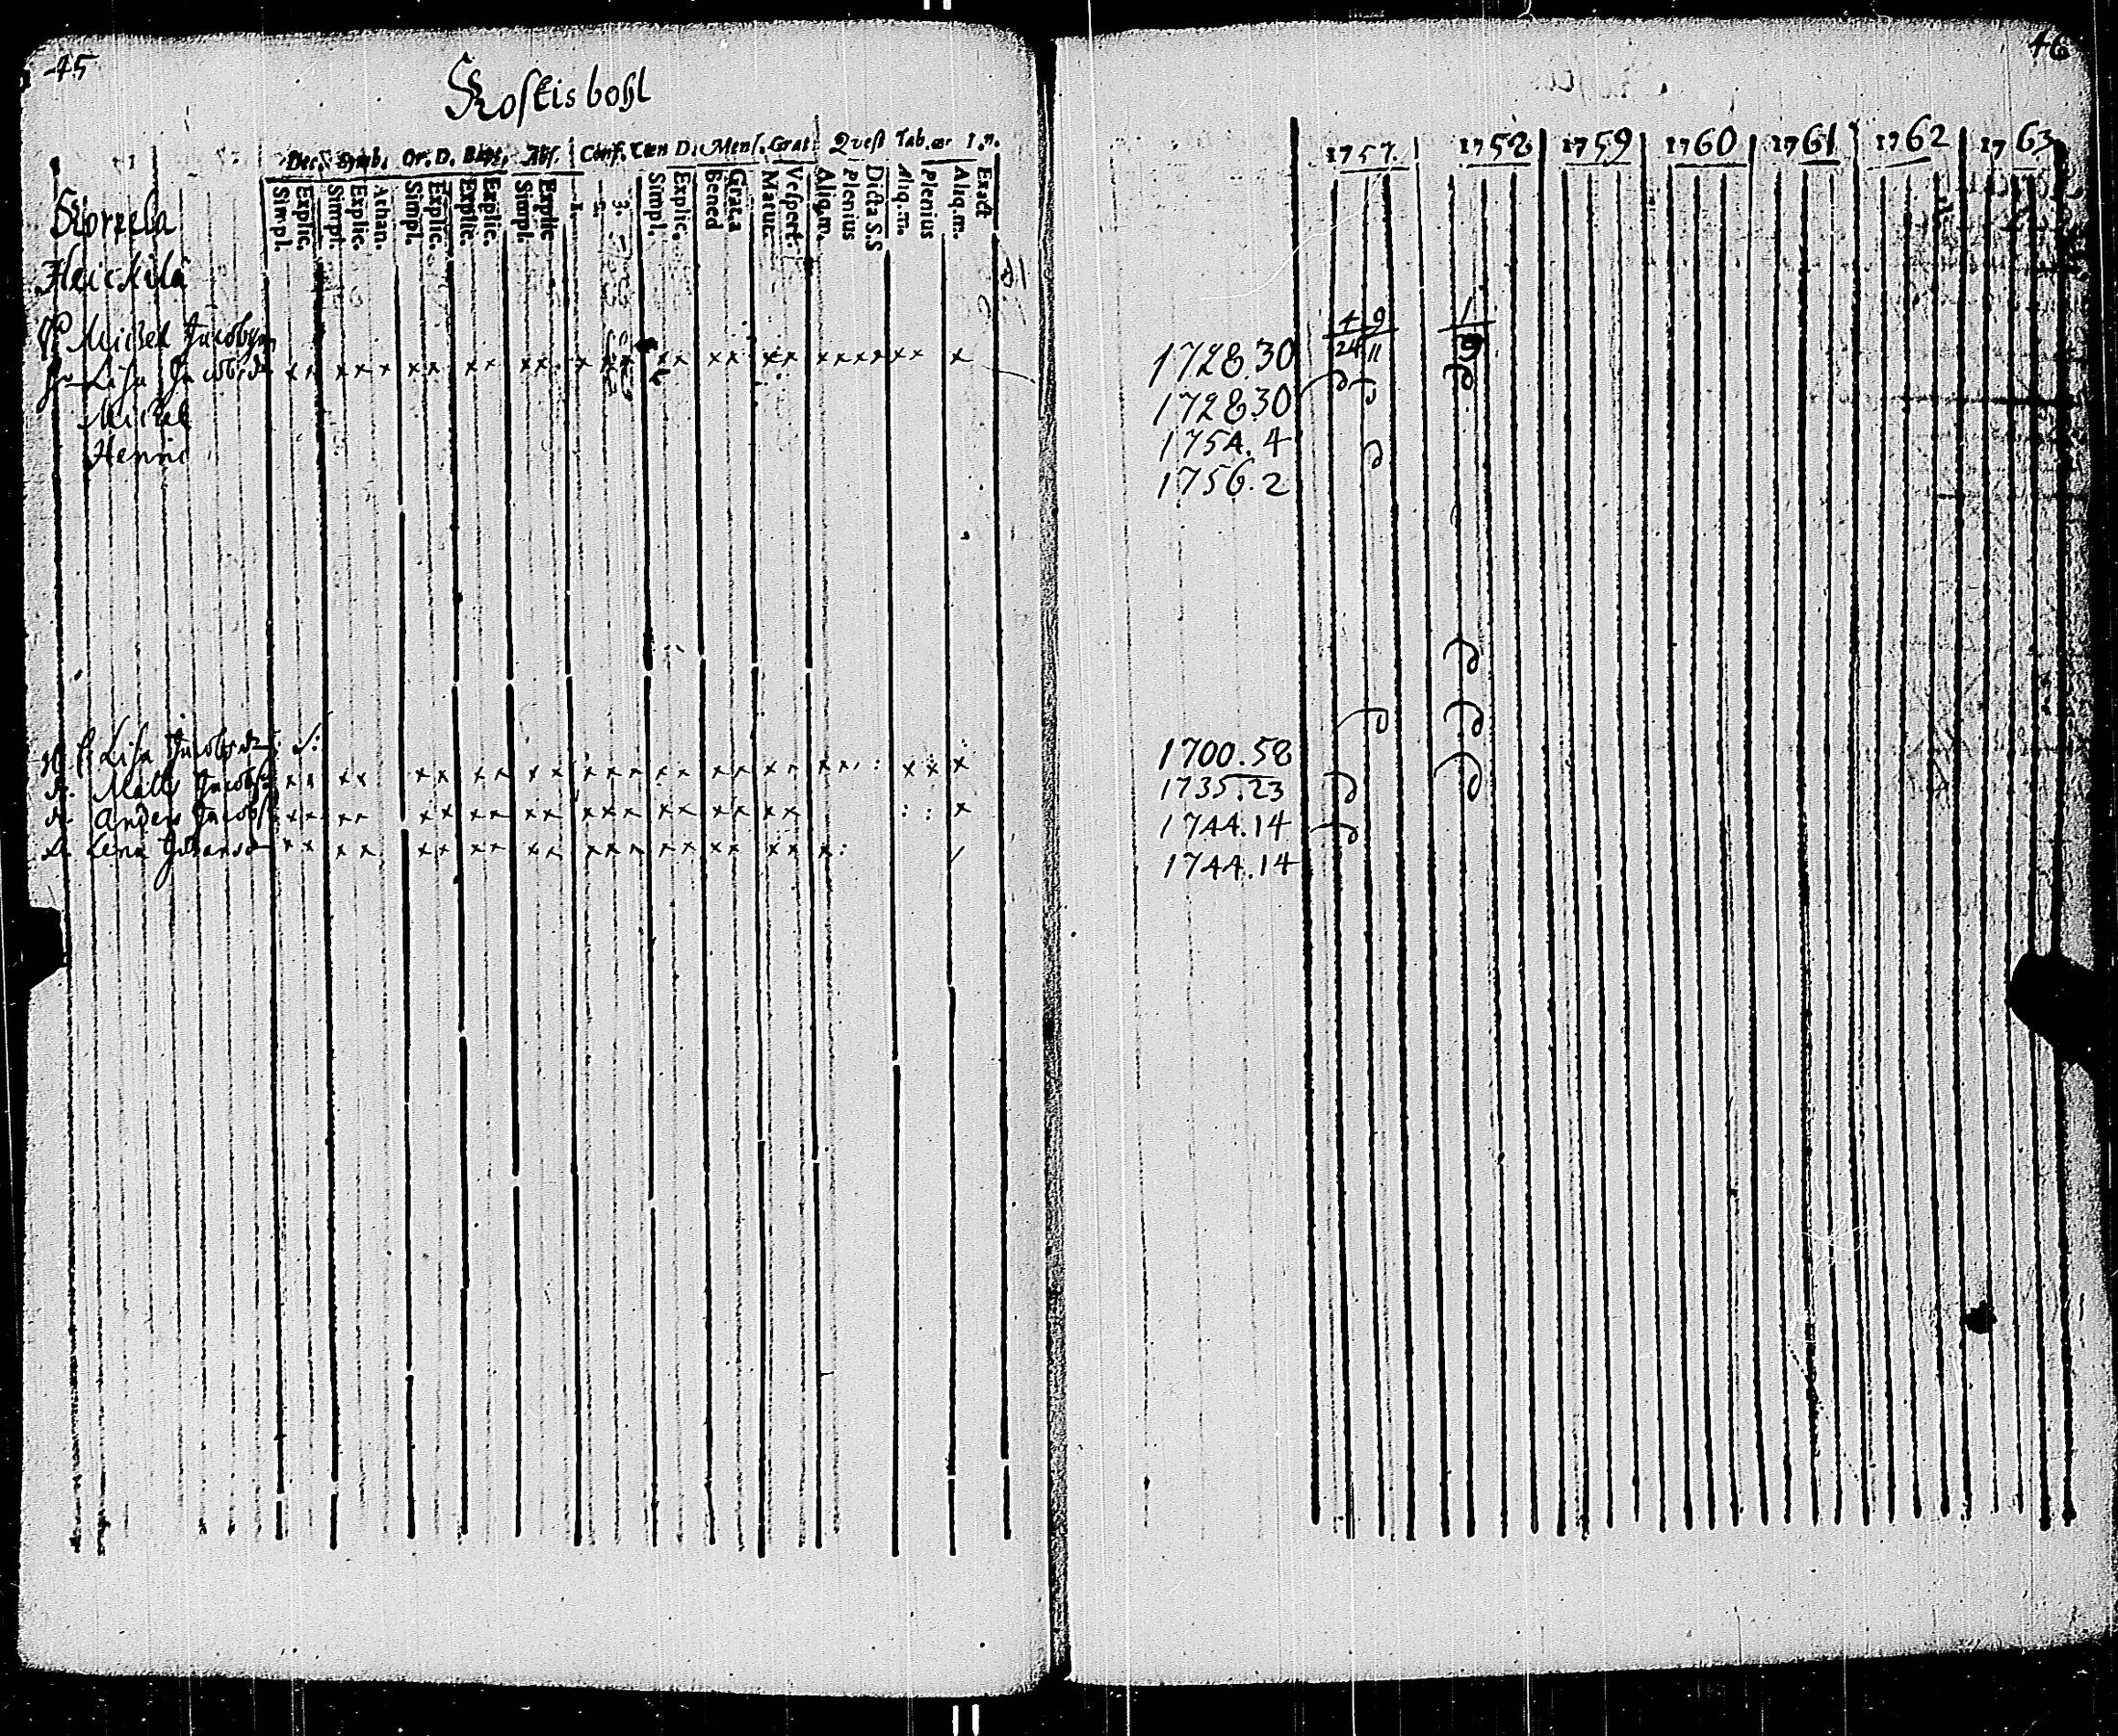 45
Koskis bohl
Dec. Symb. Or. D. Bapt. Abs. Conf. Cœn D. Mens. Grat. Quest Tab. œc I. n.
Simpl. Explic. Simpl. Explic. Athan. Simpl. Explic. Explic. Explic. Simpl. Explic 1. 2. 3. Simpl. Explic. Bened Grat.a Matut. Vespert. Aliq.m. plenius Dicta S.S Aliq.m. plenius Aliq.m. Exact
Korpela
Heickilä
Michel Jacobs
Lisa Jacobsdr
Michel
Henric
Lisa Jacobsdr
Matts Jacobs
Anders Jacobs
Lena Johansdr
46
1757. 1758 1759 1760 1761 1762 1763
4 9 1
24 11 9
1728.30
1728.30
1754.4
1756.2
1700.58
1735.23
1744.14
1744.14